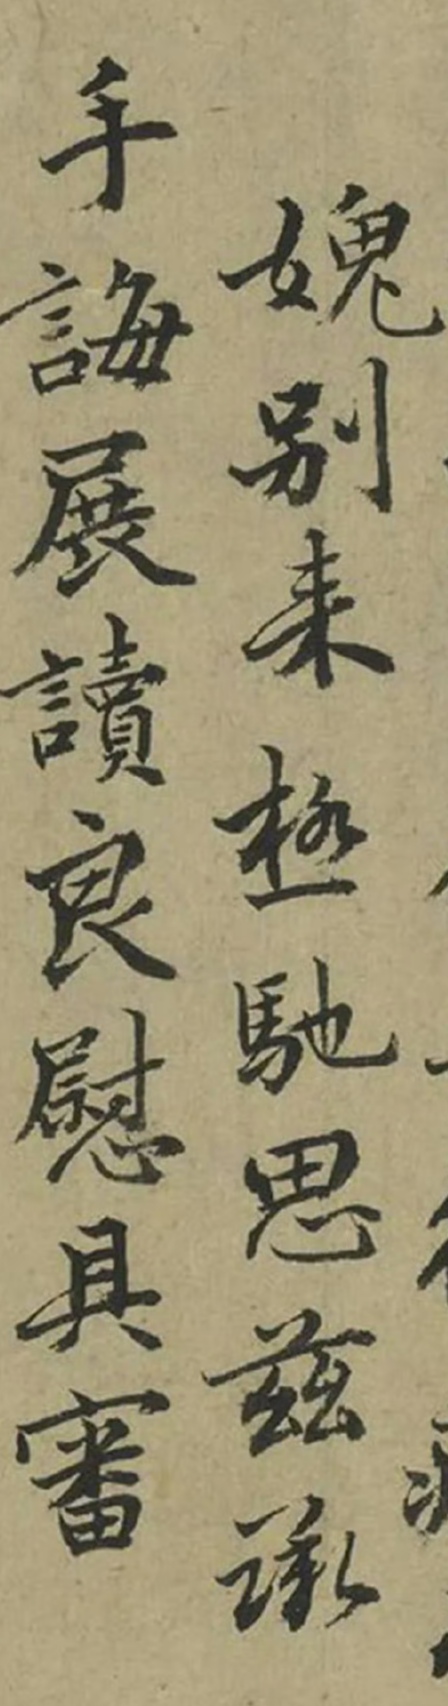 媿别来極馳思兹承
手誨展讀良慰具審